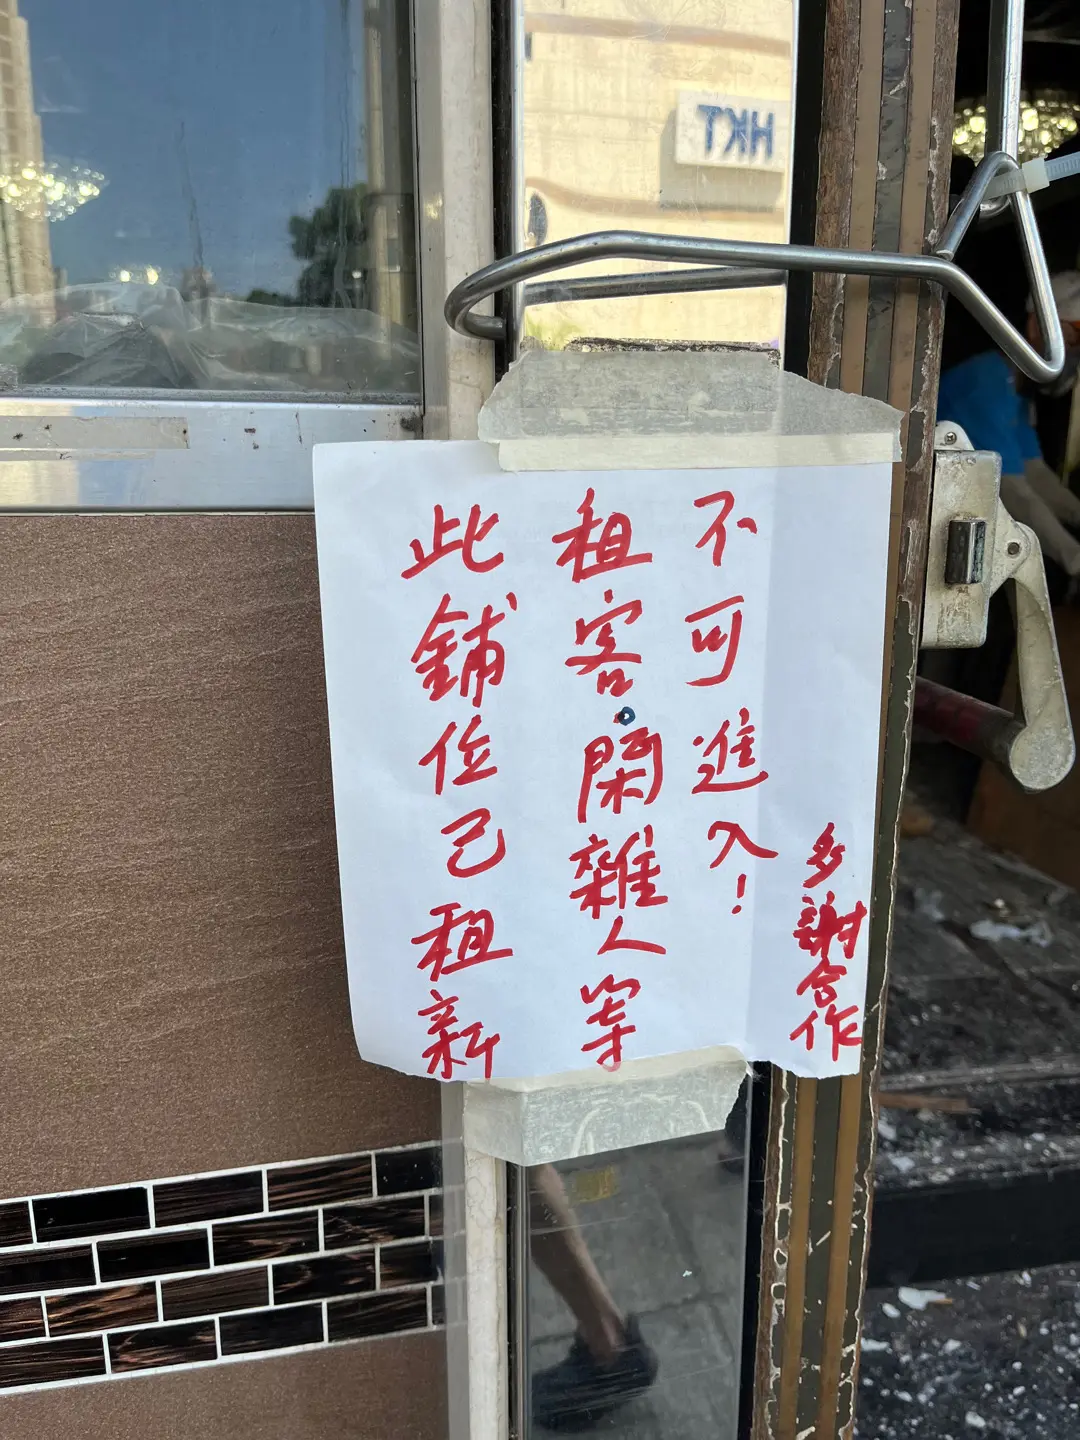 此鋪位己租新
租客。閑雜人等
不可進入!
多謝合作
HKT